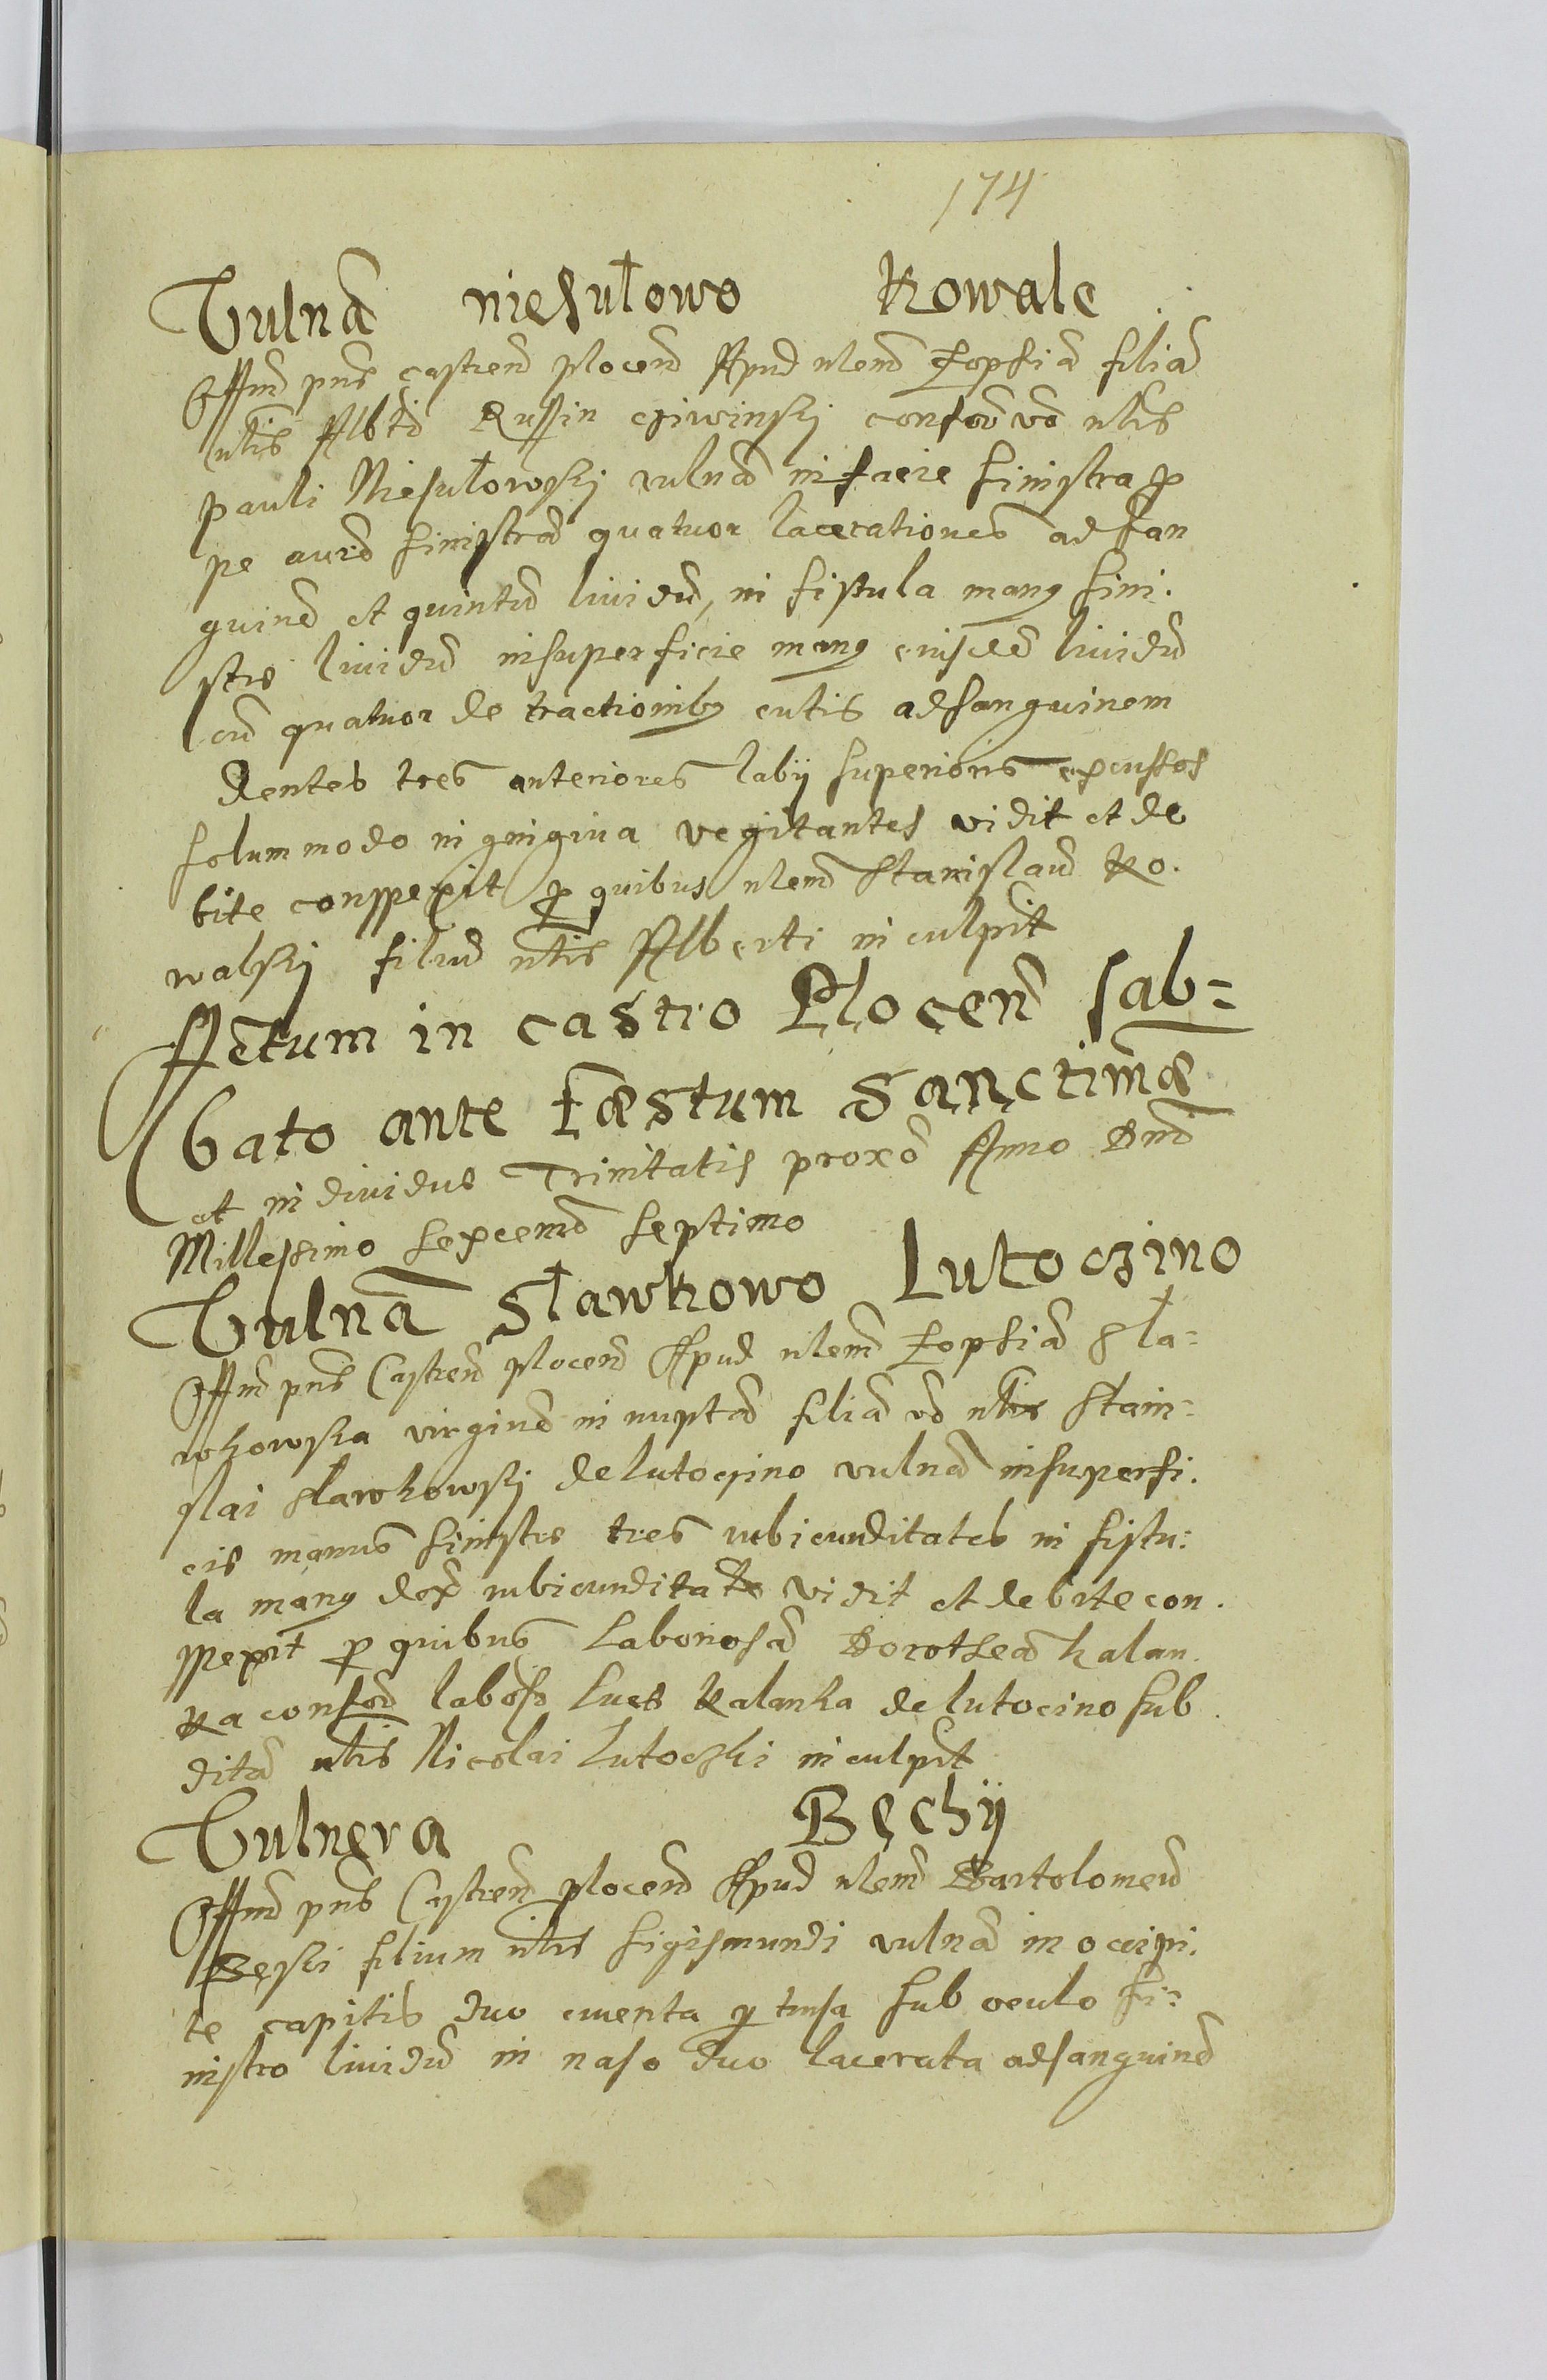 174
Vulna niesułowo Kowale
Offm pns castren plocen Apud nlem Zophia filia
nlis Albti Russin cziwinskj consor vo nlis
pauli Niesułowskj vulna in facie sinistra p
pe aure sinistra quatuor lacerationes ad san
guine et quintu liuidu, in fistula mang sini.
stre liuidu insuperficie mang eiusde liuidu
cu quatuor de tractionibg cutis adsanguinem
dentes tres anteriores labij superioris excussos
solummodo in gingiua vegitantes vidit et de
bite conspexit p quibus nlem Stanislau Ko.
walskj filiu nlis Alberti inculpit
Actum in castro Plocen sab=
bato ante Fæstum Sanctimæ
et indiuidue Trinitatis proxo Anno Dni
Millessimo sexcento septimo
Vulna Sławkowo Lutoczino
Offm pns Castren plocen Apud nlem Zophia Sła=
wkowska virgine in nupta filia vo nlis Stani=
slai Sławkowskj de lutoczino vulna insuperfi.
cie manus sinistre tres rubicunditates in fistu=
la mang dex rubicunditate vidit et debite con.
spexit p quibus Laboriosa Dorothea kalan.
ka consor labosi Luce Kalanka de lutocino sub
dita nlis Nicolai Lutoczki inculpit
Vulnera Bęchÿ
Offm pns Castren plocen Apud nlem Bartolomeu
Bęski filium nlis Sigismundi vulna in occipi.
te capitis duo cruenta p tunsa sub oculo si=
nistro liuidu in naso duo lacerata adsanguine